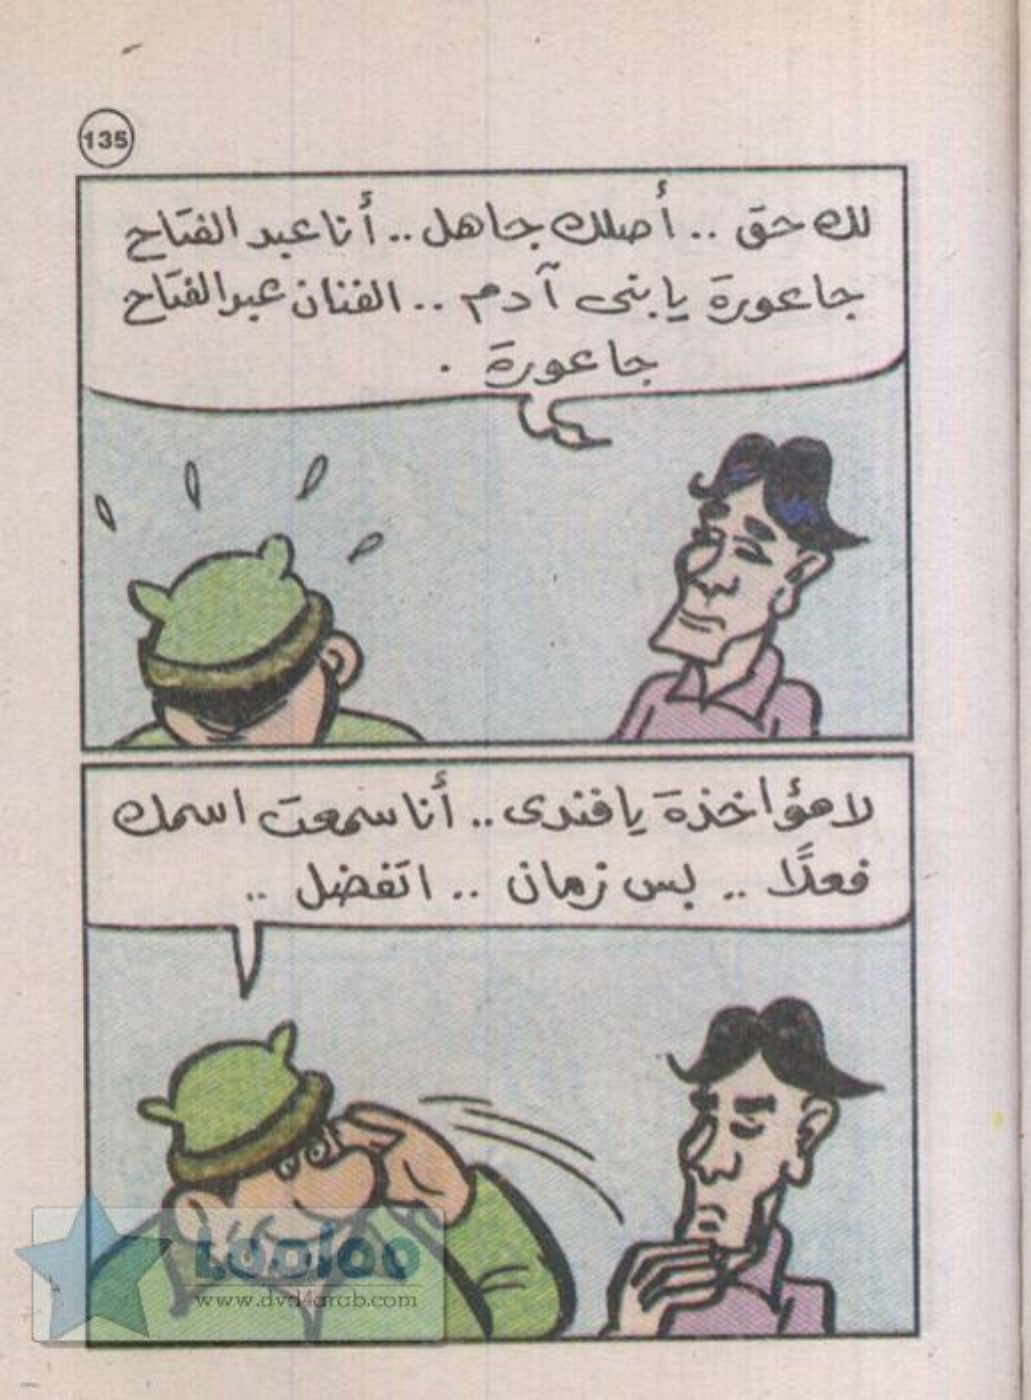 135
لك حق .. أصلك جاهل .. أنا عبد الفتاح
جاعورة يا بنى آدم .. الفنان عبد الفتاح
جاعورة .
لا مؤاخذة يافندى .. أنا سمعت اسمك
فعلًا .. بس زمان .. اتفضل ..
Looloo
www.dvd4arab.com